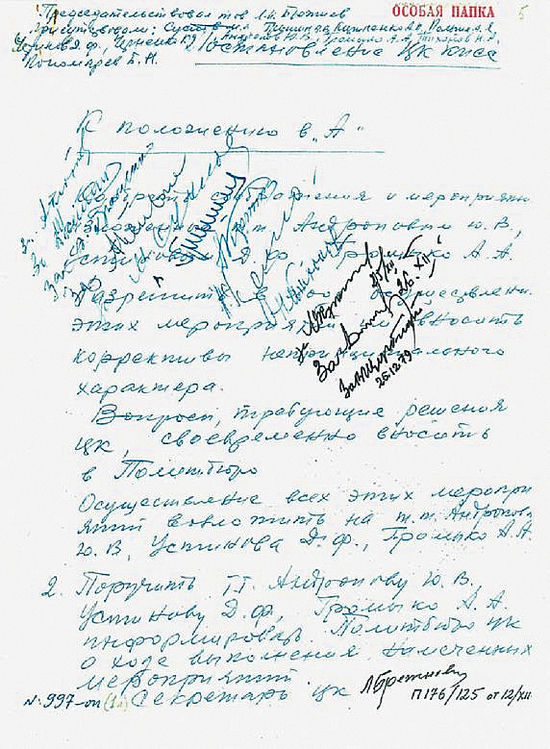 Председательствовал тов. Л.И. Брежнев
ОСОБАЯ ПАПКА
Присутствовали: Суслов М.А., Гришин В.В., Кириленко А.П., Пельше А.Я.,
Устинов Д.Ф., Черненко К.У., Андропов Ю.В., Громыко А.А., Тихонов Н.А.,
Пономарев Б.Н.
Постановление ЦК КПСС
К положению в „А“
1. Одобрить соображения и мероприятия,
изложенные т.т. Андроповым Ю.В.,
Устиновым Д.Ф., Громыко А.А.
Разрешить в ходе осуществления
этих мероприятий им вносить
коррективы непринципиального
характера.
Вопросы, требующие решения
ЦК, своевременно вносить
в Политбюро
Осуществление всех этих меропри
ятий возложить на т.т. Андропова
Ю.В., Устинова Д.Ф., Громыко А.А.
25/XII
26.XII
25.12.79
2. Поручить т.т. Андропову Ю.В.,
Устинову Д.Ф., Громыко А.А.
информировать Политбюро ЦК
о ходе выполнения намеченных
мероприятий.
Секретарь ЦК Л Брежнев
№ 997-оп (1л)
П 176/125 от 12/XII